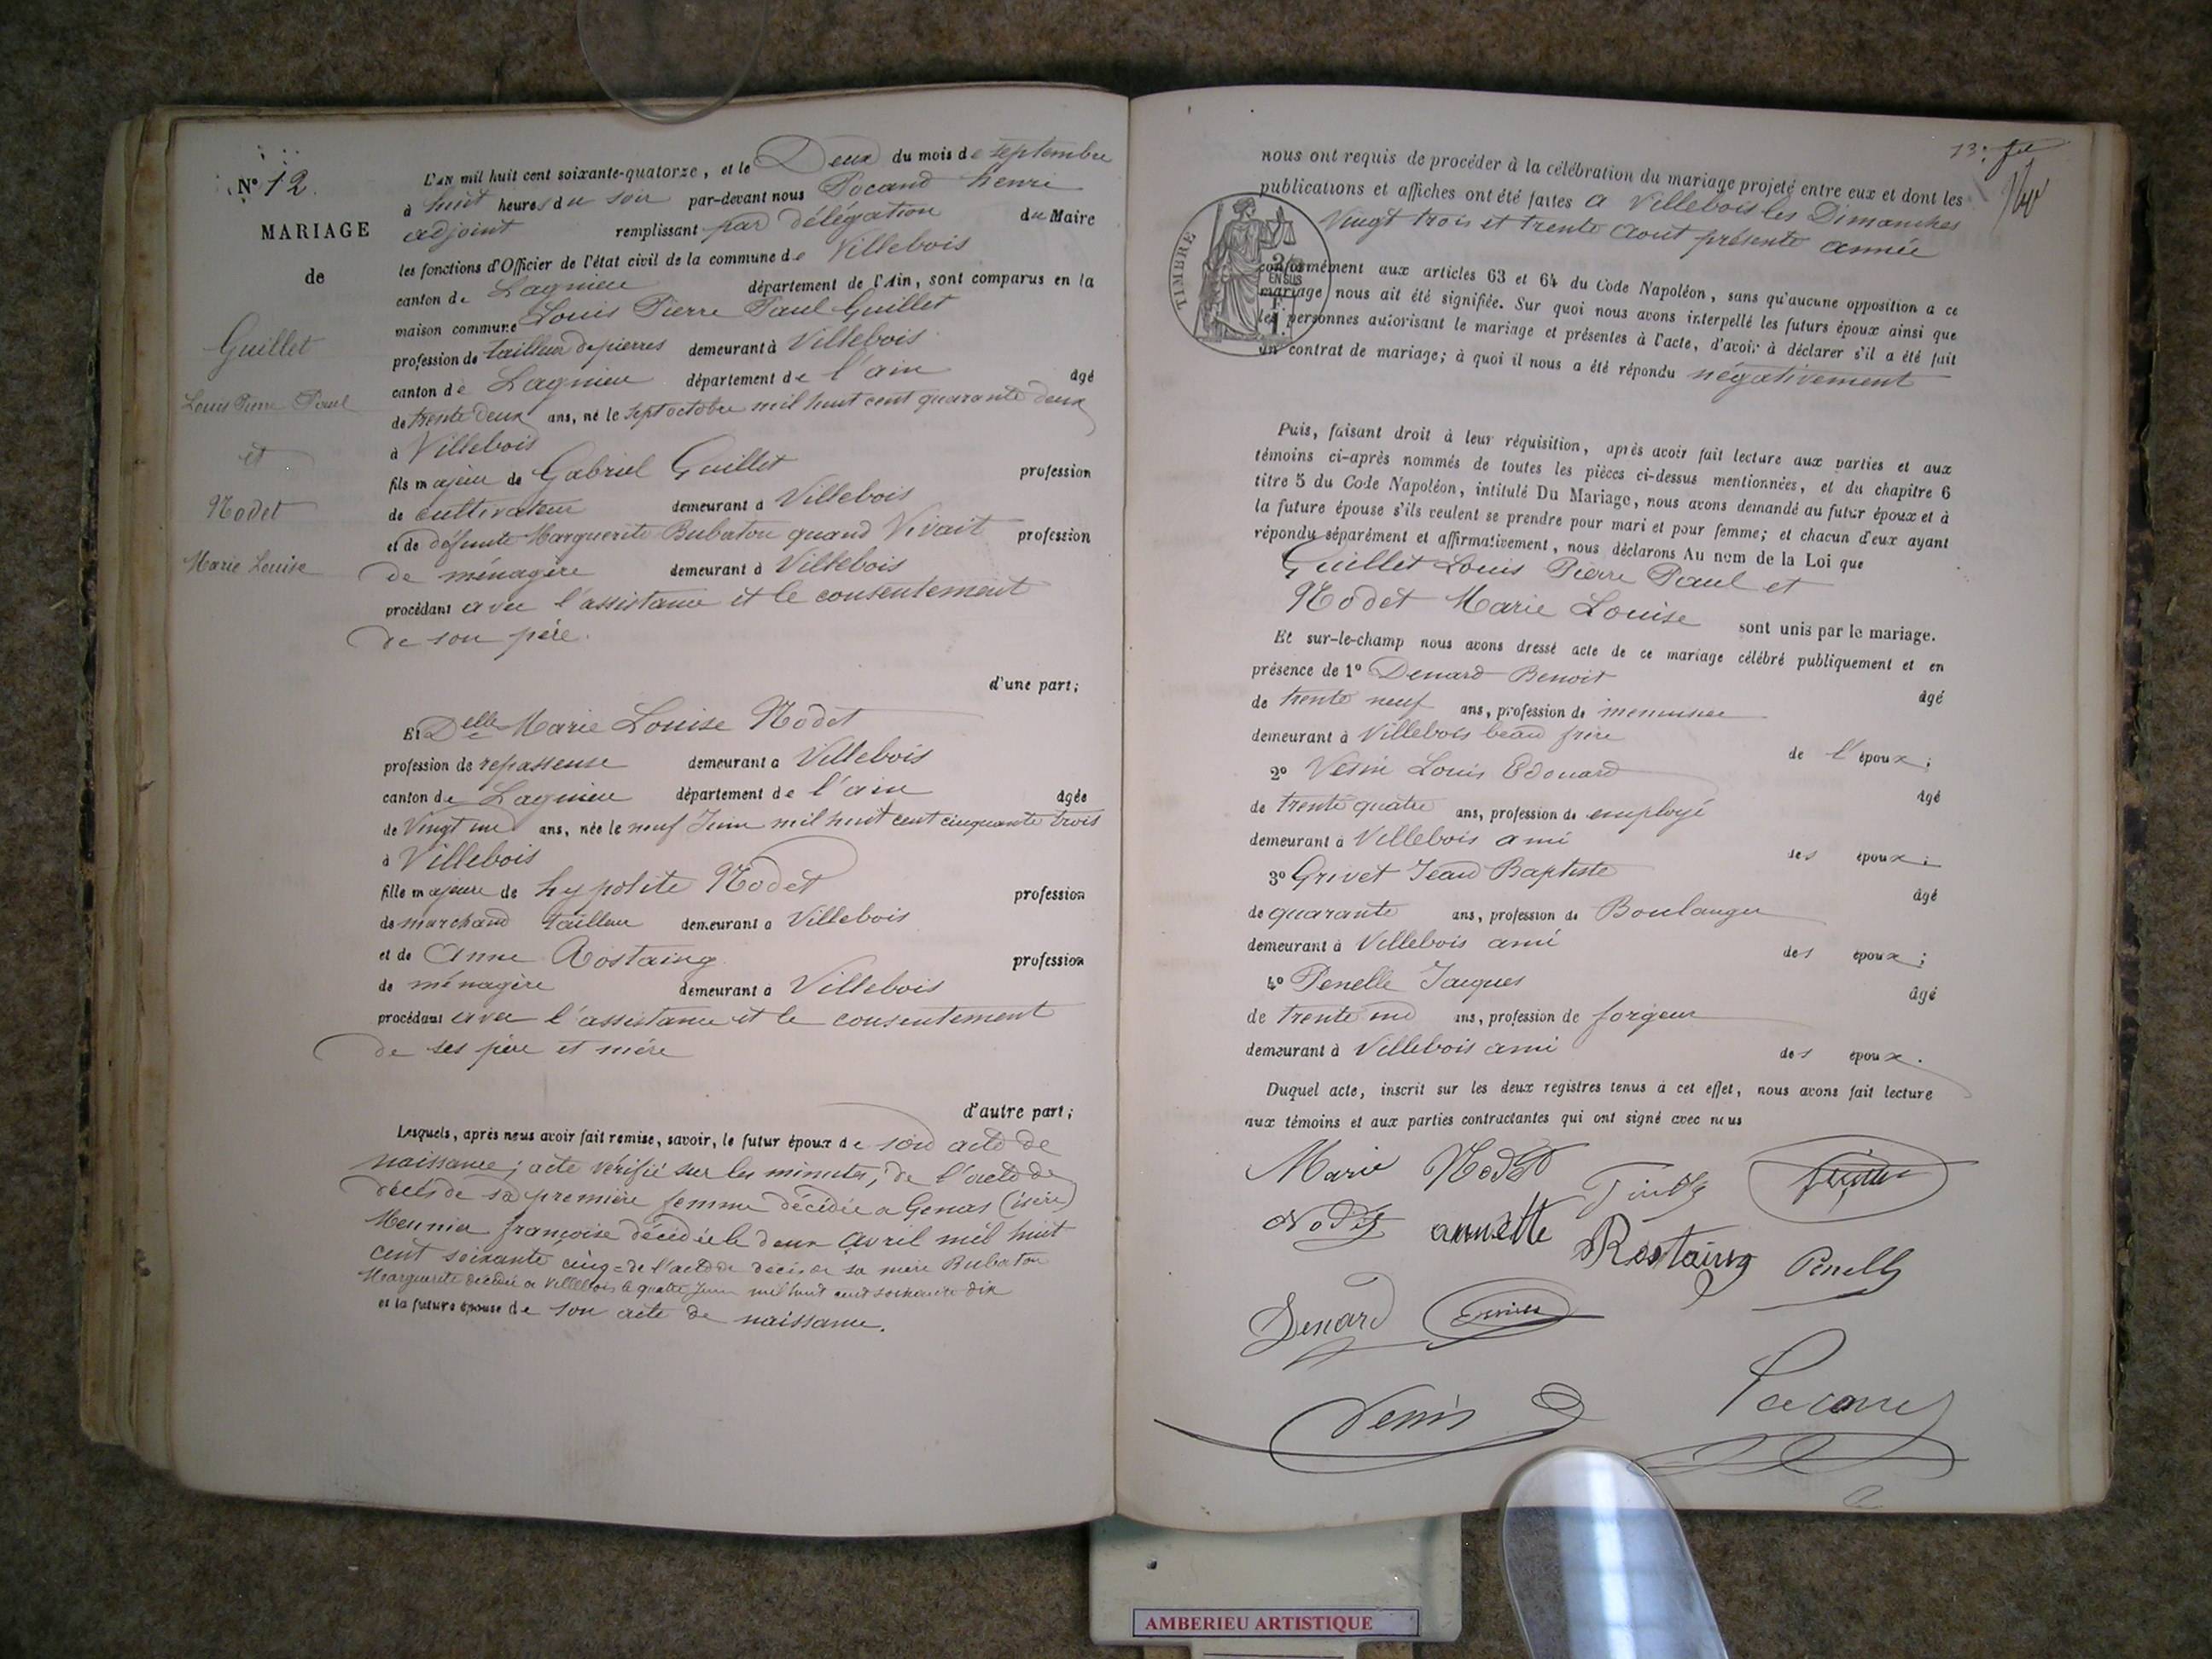 N° 12.
MARIAGE
de
Guillet
Louis Pierre Paul
et
Nodet
Marie Louise
L'AN mil huit cent soixante-quatorze, et le Deux du mois de septembre
à huit heures du soir par-devant nous Pocand henri
adjoint remplissant par délégation du Maire
les fonctions d'Officier de l'état civil de la commune de Villebois
canton de Lagnieu département de l'Ain, sont comparus en la
maison commune Louis Pierre Paul Guillet
profession de tailleur de pierres demeurant à Villebois
canton de Lagnieu département de l'ain âgé
de trente deux ans, né le sept octobre mil huit cent quarante deux
à Villebois
fils majeur de Gabriel Guillet profession
de cultivateur demeurant à Villebois
et de défunte Marguerite Bubaton quand Vivait profession
de ménagère demeurant à Villebois
procédant avec l'assistance et le consentement
de son père.
d'une part;
Et Delle Marie Louise Nodet
profession de repasseuse demeurant à Villebois
canton de Lagnieu département de l'ain âgée
de Vingt un ans, née le neuf Juin mil huit cent cinquante trois
à Villebois
fille majeure de hypolite Nodet profession
de marchand tailleur demeurant à Villebois
et de Anne Rostaing profession
de ménagère demeurant à Villebois
procédant avec l'assistance et le consentement
de ses père et mère
d'autre part;
Lesquels, après nous avoir fait remise, savoir, le futur époux de son acte de
naissance; acte vérifié sur les minutes; de l'acte de
décès de sa première femme décédée a Genas (isère)
Meunier françoise décédée le deux avril mil huit
cent soixante cinq = de l'acte de décès de sa mère Bubaton
Marguerite décédée a Villebois le quatre Juin mil huit cent soixante dix
et la future épouse de son acte de naissance.
13e
nous ont requis de procéder à la célébration du mariage projeté entre eux et dont les
publications et affiches ont été faites à Villebois les Dimanches
Vingt trois et trente aout présente année
TIMBRE
EN SUS
conformément aux articles 63 et 64 du Code Napoléon, sans qu'aucune opposition a ce
mariage nous ait été signifiée. Sur quoi nous avons interpellé les futurs époux ainsi que
les personnes autorisant le mariage et présentes à l'acte, d'avoir à déclarer s'il a été fait
un contrat de mariage; à quoi il nous a été répondu négativement
Puis, faisant droit à leur réquisition, après avoir fait lecture aux parties et aux
témoins ci-après nommés de toutes les pièces ci-dessus mentionnées, et du chapitre 6
titre 5 du Code Napoléon, intitulé Du Mariage, nous avons demandé au futur époux et à
la future épouse s'ils veulent se prendre pour mari et pour femme; et chacun d'eux ayant
répondu séparément et affirmativement, nous déclarons Au nom de la Loi que
Guillet Louis Pierre Paul et
Nodet Marie Louise sont unis par le mariage.
Et sur-le-champ nous avons dressé acte de ce mariage célébré publiquement et en
présence de 1° Denard Benoit âgé
de trente neuf ans, profession de menuisier
demeurant à Villebois beau frère de l'époux;
2° Louis Edouard âgé
de trente quatre ans, profession de employé
demeurant à Villebois ami des époux;
3° Grivet Jean Baptiste âgé
de quarante ans, profession de Boulanger
demeurant à Villebois ami des époux;
4° Penelle Jacques âgé
de trente un ans, profession de forgeur
demeurant à Villebois ami des époux.
Duquel acte, inscrit sur les deux registres tenus à cet effet, nous avons fait lecture
aux témoins et aux parties contractantes qui ont signé avec nous
Marie Nodet
Nodet annette Rostaing Penelle
Denard
Pocand
AMBERIEU ARTISTIQUE